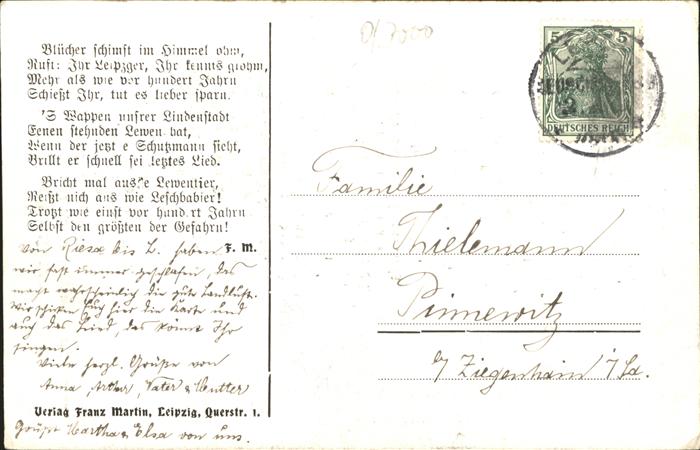 Blücher schimft im Himmel ohm,
Ruft: Ihr Leipzger, Ihr kennts grohm,
Mehr als wie vor hundert Jahrn
Schießt Ihr, tut es lieber sparn.
'S Wappen unsrer Lindenstadt
Eenen stehnden Lewen hat,
Wenn der jetzt e Schutzmann sieht,
Brillt er schnell sei letztes Lied.
Bricht mal auss'e Lewentier,
Reißt nich aus wie Leschbabier!
Trotzt wie einst vor hundert Jahrn
Selbst den größten der Gefahrn!
F. M.
Von Riesa bis L. haben
wir fast immer geschlafen, das
macht wahrscheinlich die gute Landluft.
Wir schicken Euch hier die Karte und
auch das Lied, das könnt Ihr
singen.
Viele herzl. Grüße von
Anna, Arthur, Vater & Mutter
Verlag Franz Martin, Leipzig, Querstr. 1.
Grüßt Martha & Elsa von uns.
0/7000
5 5
DEUTSCHES REICH
Familie
Thielemann
Pinnewitz
b/ Ziegenhain i/Sa.